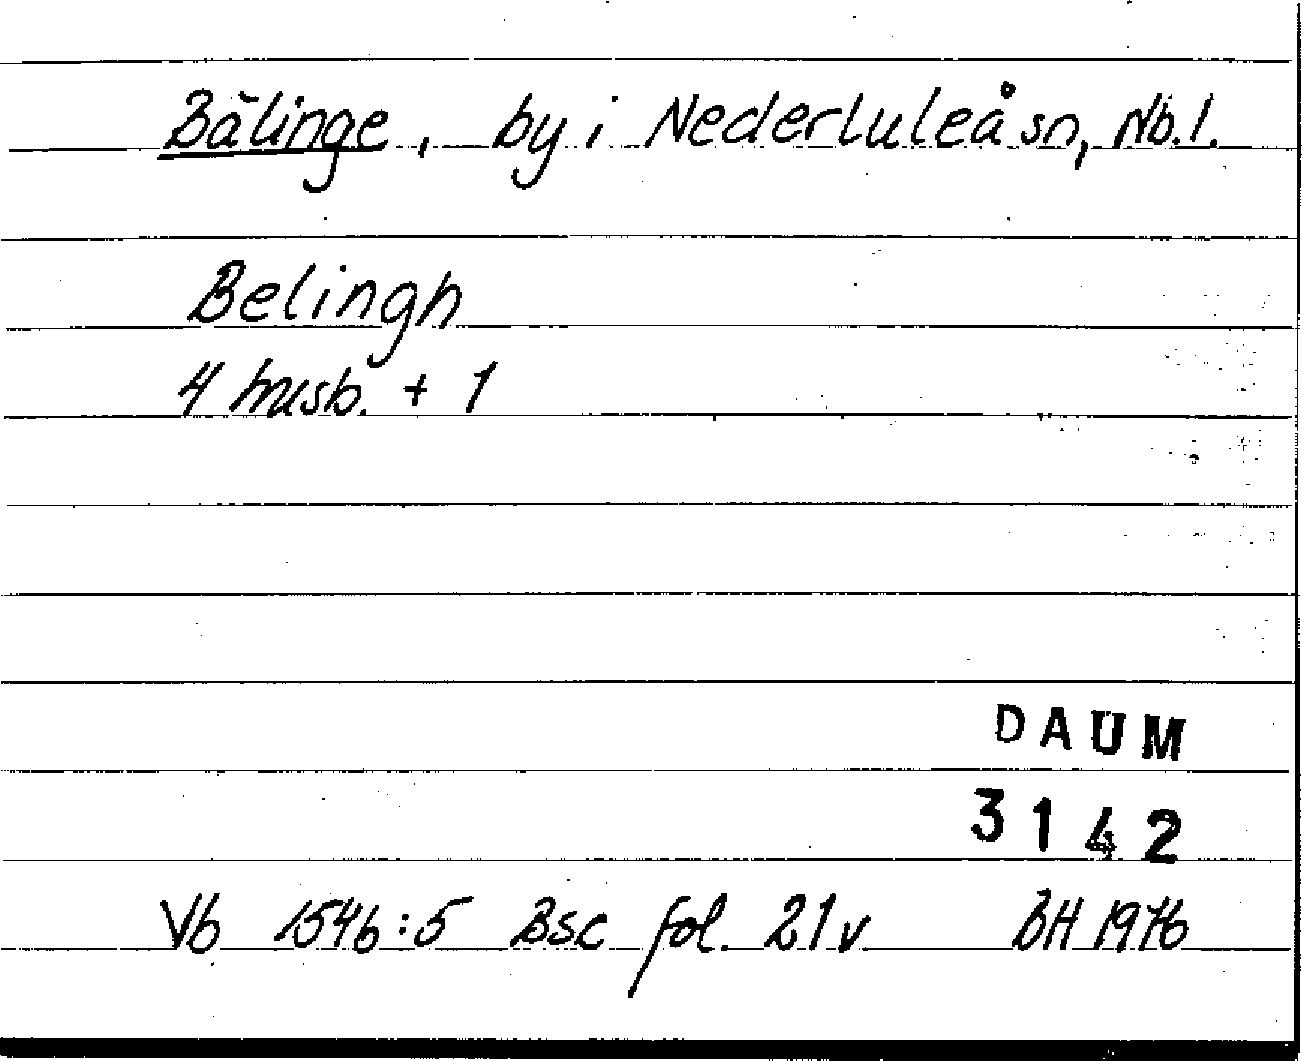 Bälinge, by i Nederluleå sn, Nb. l.
Belingh
4 husb. + 1
DAUM
3142
Vb 1546:5 Bsc fol. 21v BH 1976